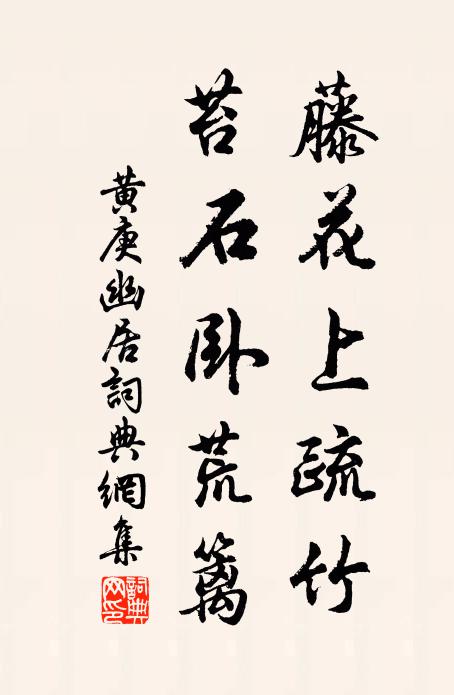 藤花上疏竹
苔石卧荒篱
黄庚幽居詞典網集
詞典網印